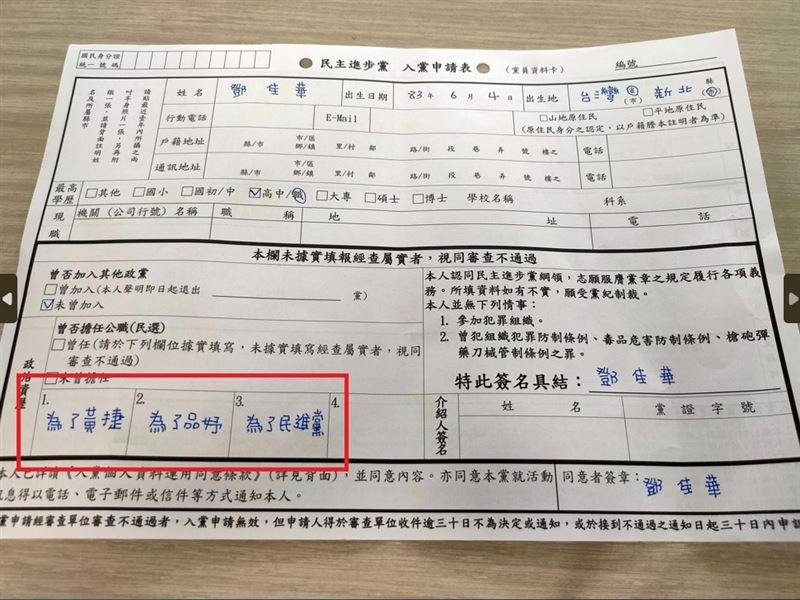 國民身分證
統一號碼
民主進步黨 入黨申請表 (黨員資料卡) 編號
請貼最近壹年內所攝之兩
吋半身照片一張,另再附
繳一張,並請背面註明姓
名及所屬縣市
姓名 鄧佳華 出生日期 83年6月4日 出生地 台灣 省(市) 新北 縣(市)
行動電話 E-Mail □山地原住民 □平地原住民
(原住民身分之認定,以戶籍謄本註明者為準)
戶籍地址 縣/市 市/區 鄉/鎮 里/村 鄰 路/街 段 巷 弄 號 樓之 電話
通訊地址 縣/市 市/區 鄉/鎮 里/村 鄰 路/街 段 巷 弄 號 樓之 電話
最高學歷 □其他 □國小 □國初/中 ☑高中/職 □大專 □碩士 □博士 學校名稱 科系
現職 機關(公司行號)名稱 職稱 地址 電話
本欄未據實填報經查屬實者,視同審查不通過
政治資歷
曾否加入其他政黨
□曾加入(本人聲明即日起退出 黨)
☑未曾加入
曾否擔任公職(民選)
□曾任(請於下列欄位據實填寫,未據實填寫經查屬實者,視同
審查不通過)
□未曾擔任
1. 為了黃捷
2. 為了品妤
3. 為了民進黨
4.
本人認同民主進步黨綱領,志願服膺黨章之規定履行各項義
務。所填資料如有不實,願受黨紀制裁。
本人並無下列情事:
1. 參加犯罪組織。
2. 曾犯組織犯罪防制條例、毒品危害防制條例、槍砲彈
藥刀械管制條例之罪。
特此簽名具結: 鄧佳華
介紹人簽名 姓名 黨證字號
本人已詳讀《入黨個人資料運用同意條款》(詳見背面),並同意內容。亦同意本黨就活動
訊息得以電話、電子郵件或信件等方式通知本人。
同意者簽章: 鄧佳華
黨申請經審查單位審查不通過者,入黨申請無效,但申請人得於審查單位收件逾三十日不為決定或通知,或於接到不通過之通知日起三十日內申請